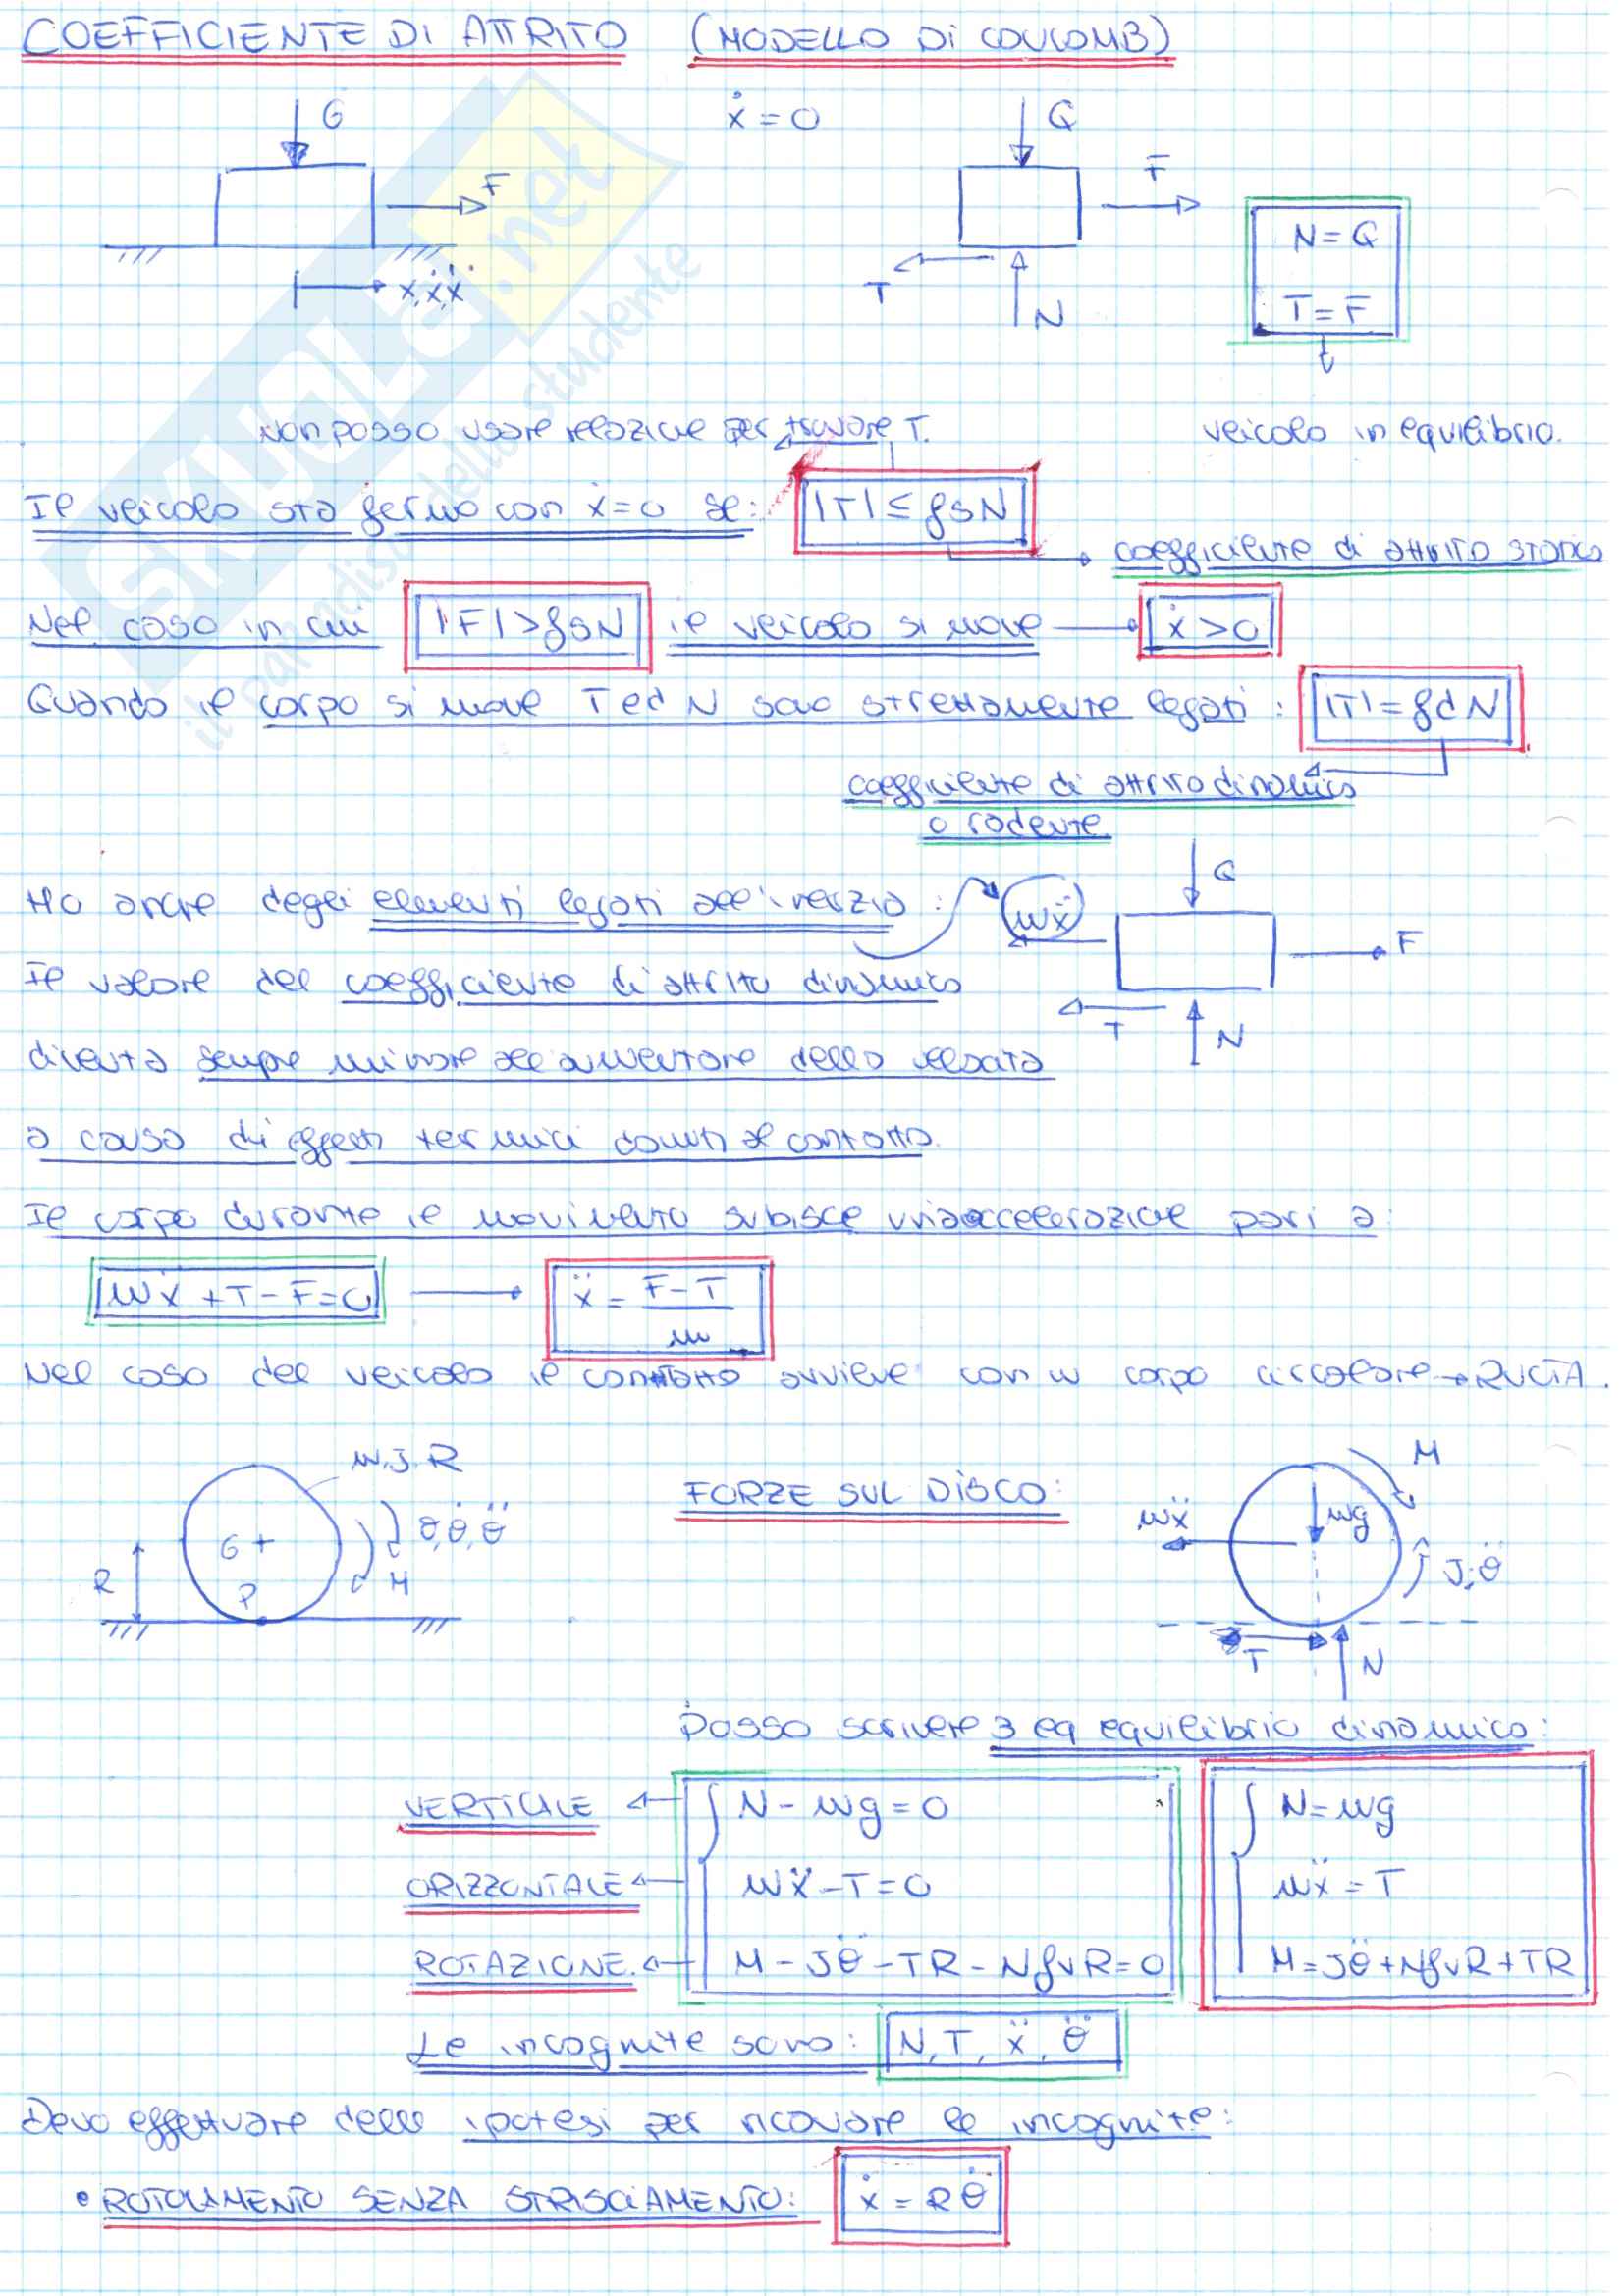 COEFFICIENTE DI ATTRITO (MODELLO DI COULOMB)
G
F
x, ẋ, ẍ
ẋ = 0
Q
F
T
N
N = Q
T = F
non posso usare relazione per trovare T.
veicolo in equilibrio.
Il veicolo sta fermo con ẋ=0 se: |T| ≤ fsN
coefficiente di attrito statico
Nel caso in cui |F| > fsN il veicolo si move → ẋ > 0
Quando il corpo si move T ed N sono strettamente legati: |T| = fdN
coefficiente di attrito dinamico
o radente
Ho anche degli elementi legati all'inerzia:
mẍ
Q
F
T
N
Il valore del coefficiente di attrito dinamico
diventa sempre minore all'aumentare della velocità
a causa di effetti termici dovuti al contatto.
Il corpo durante il movimento subisce una accelerazione pari a:
mẍ + T - F = 0 → ẍ = F - T / m
Nel caso del veicolo il contatto avviene con un corpo circolare → RUOTA.
m, J, R
θ, θ̇, θ̈
G
M
R
P
FORZE SUL DISCO:
M
mẍ
mg
J, θ̈
T
N
Posso scrivere 3 eq equilibrio dinamico:
VERTICALE ← N - mg = 0
N = mg
ORIZZONTALE ← mẍ - T = 0
mẍ = T
ROTAZIONE. ← M - Jθ̈ - TR - NfvR = 0
M = Jθ̈ + NfvR + TR
Le incognite sono: N, T, ẍ, θ̈
Devo effettuare delle ipotesi per ricavare le incognite:
• ROTOLAMENTO SENZA STRISCIAMENTO: ẋ = Rθ̇
skuola.net
il paradiso dello studente